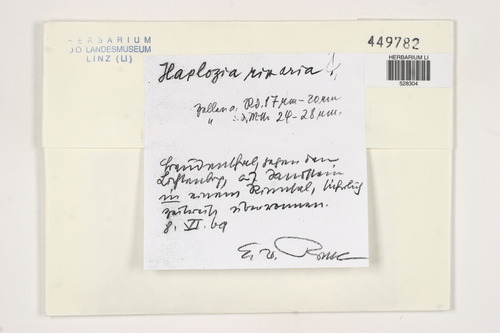 HERBARIUM
OÖ LANDESMUSEUM
LINZ (LI)
449782
HERBARIUM LI
528304
Haplozia riparia
Zellen a. Rd. 17 µm – 20 µm
" i. d. Mitte 24 – 28 µm.
gegen den
Lichtenberg, auf Sandstein
in einem Rinnsal,
zeitweise überronnen.
8. VI. 69
E. W. Ricek